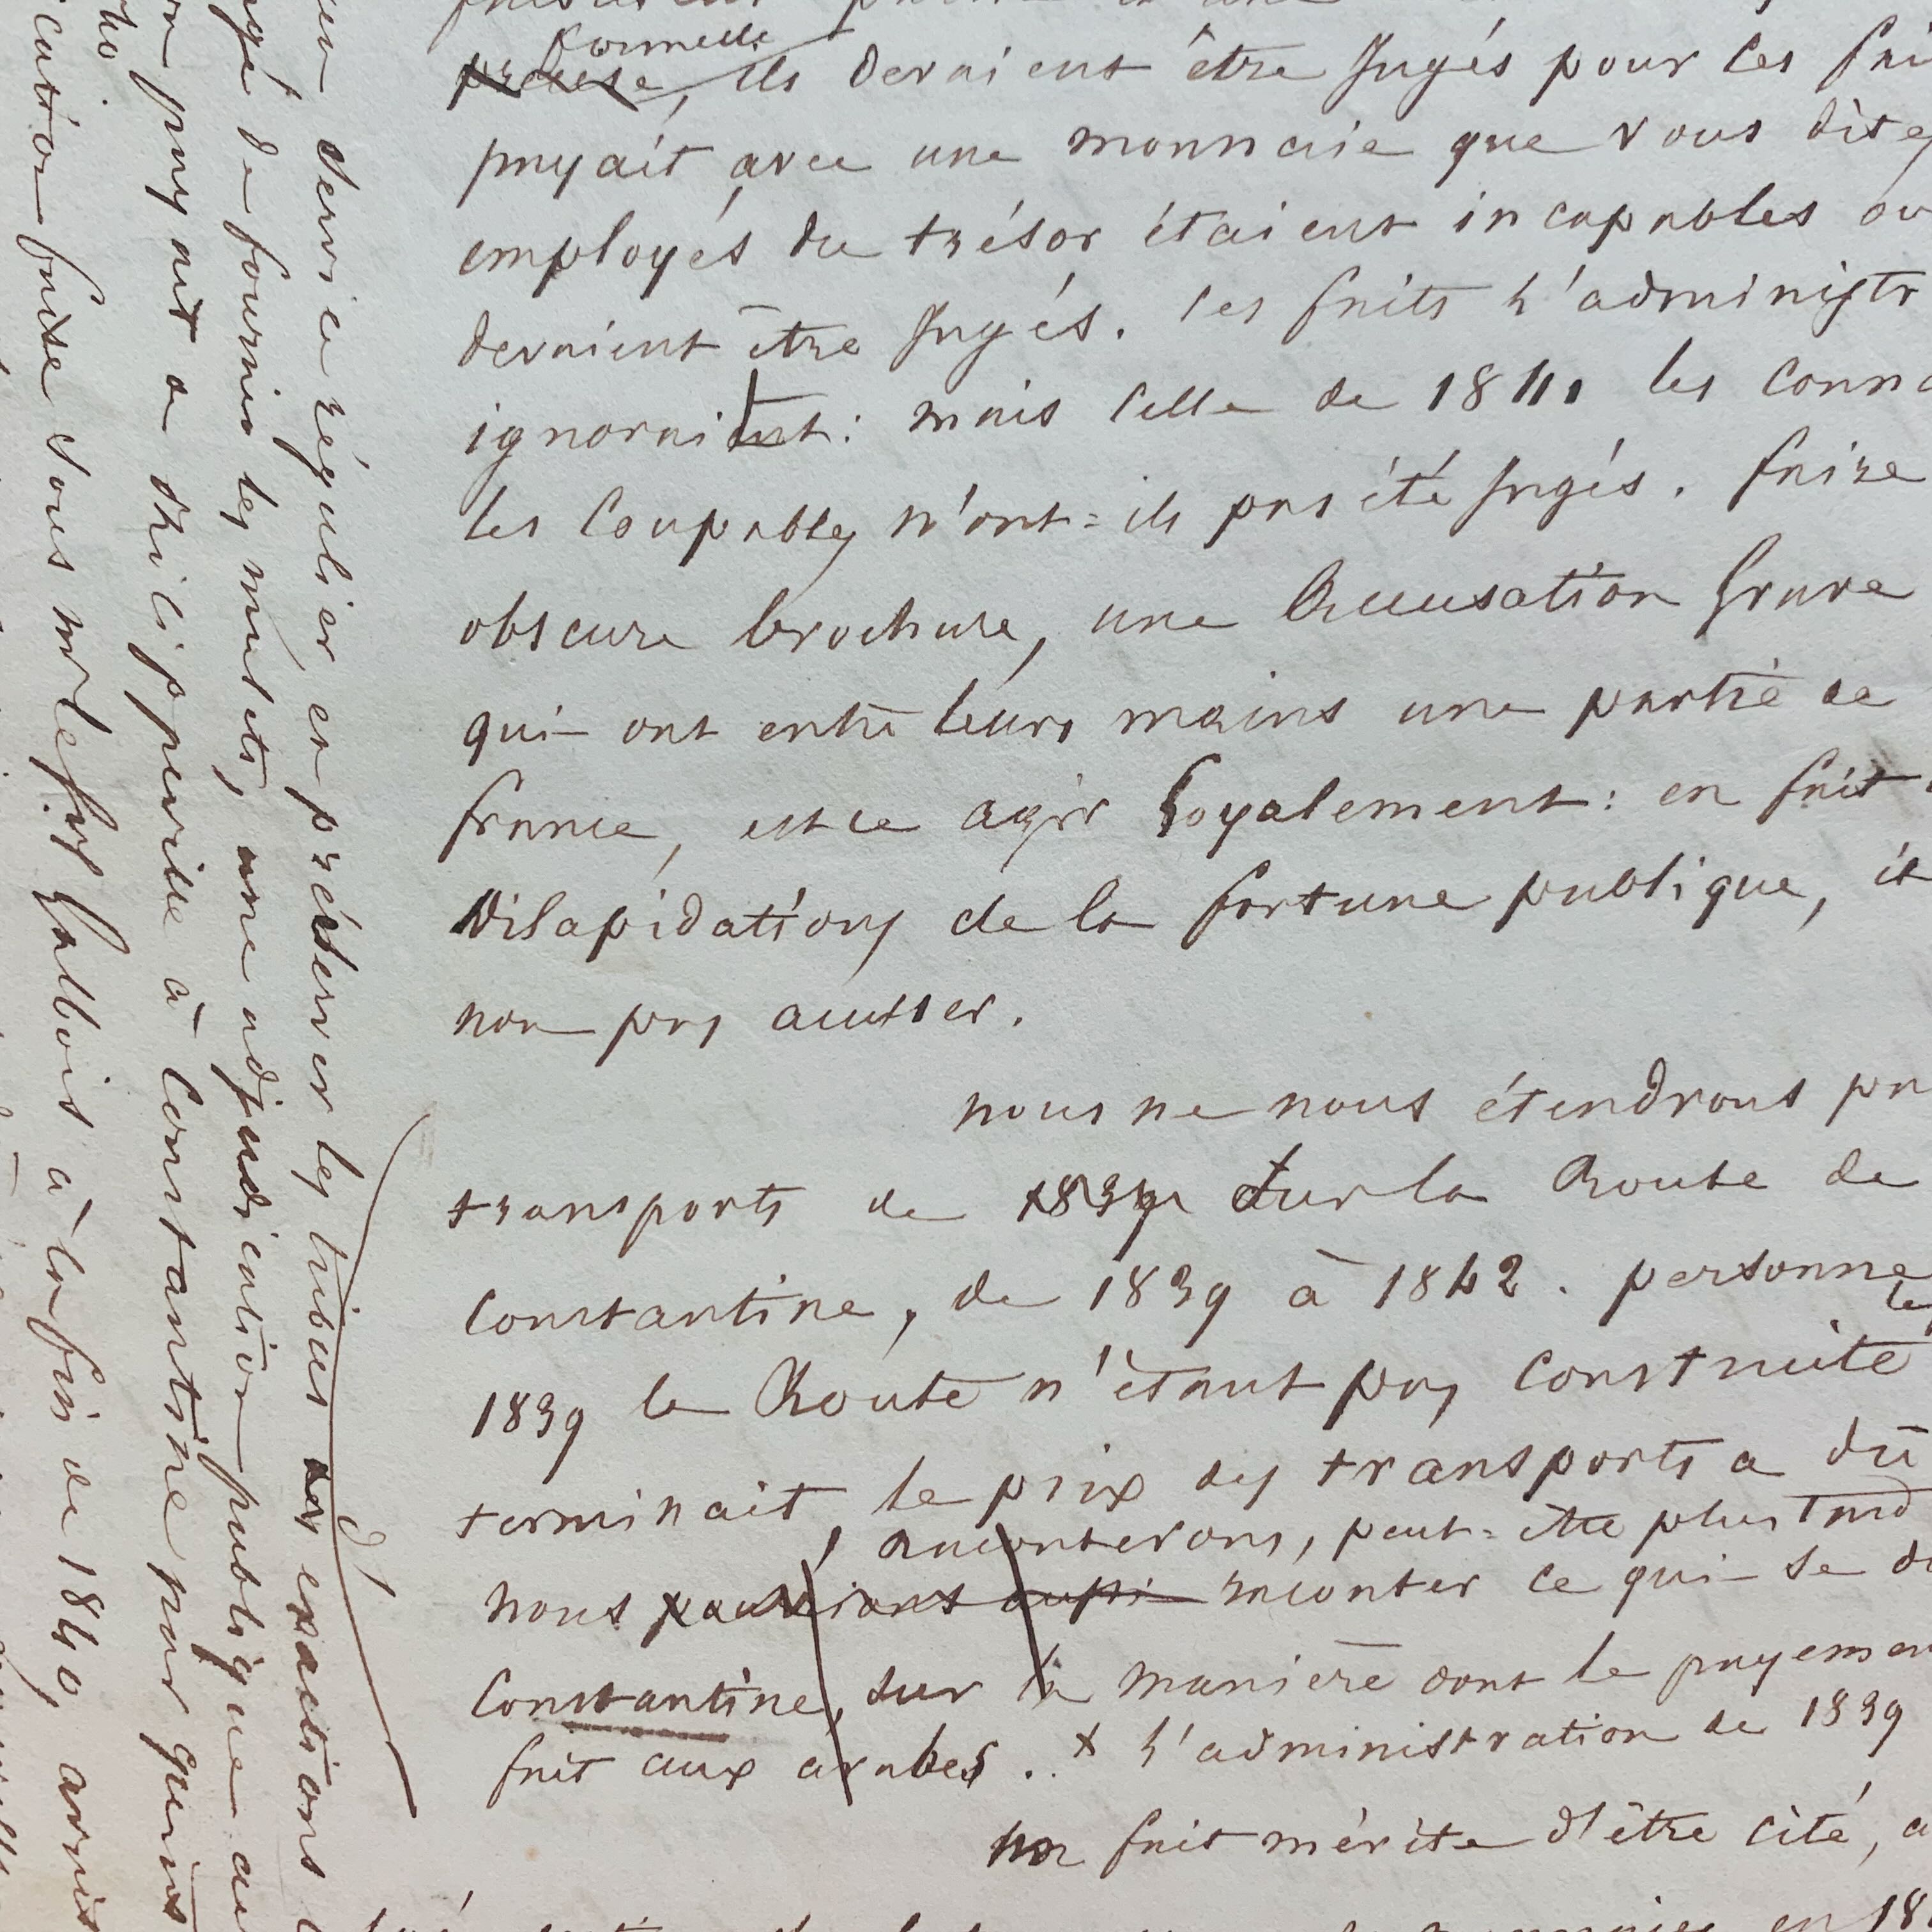 formelle
précise, ils devaient être jugés pour les fai
payait avec une monnaie que vous dites
employés du trésor étaient incapables ou
devaient être jugés. les faits l'administr
ignorait: mais celle de 1841 les conna
les coupables n'ont=ils pas été jugés. faire
obscure brochure, une accusation grave
qui ont entre leurs mains une partie de
france, est ce agir loyalement: en fait
dilapidations de la fortune publique, il
non pas accuser.
nous ne nous étendrons pa
transports de 1839 sur la Route de
Constantine, de 1839 à 1842. personne
les
1839 la Route n'étant pas construite
terminait, le prix des transports a dû
raconterons, peut=être plus tard
nous pourrions aussi raconter ce qui se
Constantine, sur la manière dont le payemen
fait aux arabes. x l'administration de 1839
un fait mérite d'être cité, a
en 18
service régulier, en préserver les tribus des exactions
d'
de fournir les mulets, une adjudication publique
payait de philippeville à Constantine par quint
sous mr le galbois à la fin de 1840, avait